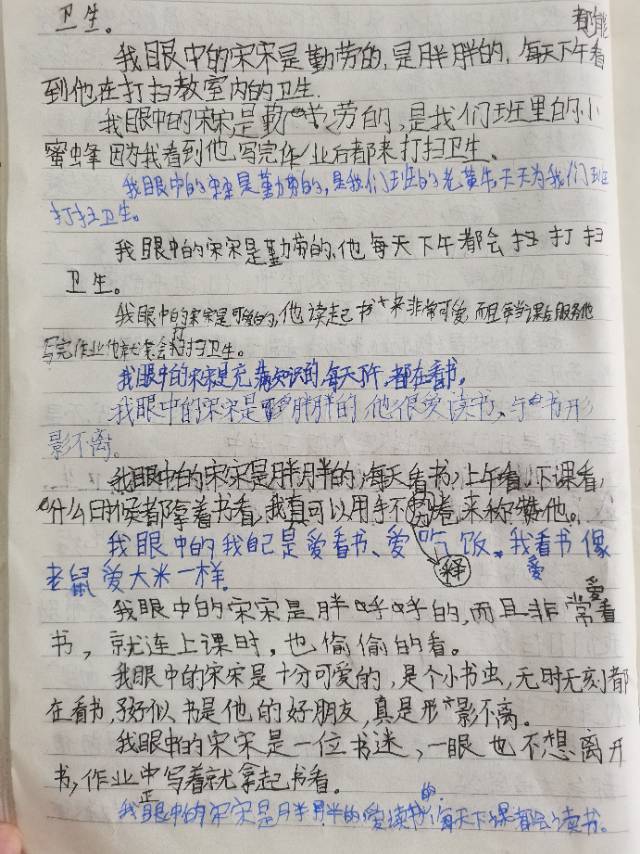 卫生。
都能
我眼中的宋宋是勤劳的,是胖胖的,每天下午看
到他在打扫教室内的卫生.
我眼中的宋宋是勤劳的,是我们班里的小
蜜蜂因为我看到他写完作业后都来打扫卫生、
我眼中的宋宋是勤劳的,是我们班的老黄牛,天天为我们班
打扫卫生。
我眼中的宋宋是勤劳的,他每天下午都会扫打扫
卫生。
我眼中的宋宋是可爱的,他读起书来非常可爱而且每当课后服务他
写完作业他就都会打扫卫生。
我眼中的宋宋是充满知识的,每天下午,都在看书,
我眼中的宋宋是胖胖的他很爱读书、与书形
影不离。
我眼中的宋宋是胖胖的,每天看书,上午看,下课看,
什么时候都拿着书看,我真可以用手不释卷来称赞他。
我眼中的我自己是爱看书、爱吃饭。我爱看书像
老鼠爱大米一样。
我眼中的宋宋是胖呼呼的,而且非常爱看
书,就连上课时,也偷偷的看。
我眼中的宋宋是十分可爱的,是个小书虫,无时无刻都
在看书,好似书是他的好朋友,真是形影不离。
我眼中的宋宋是一位书迷,一眼也不想离开
书,作业中正写着就拿起书看。
我眼中的宋宋是胖胖的爱读书的,每天下课都会读书。